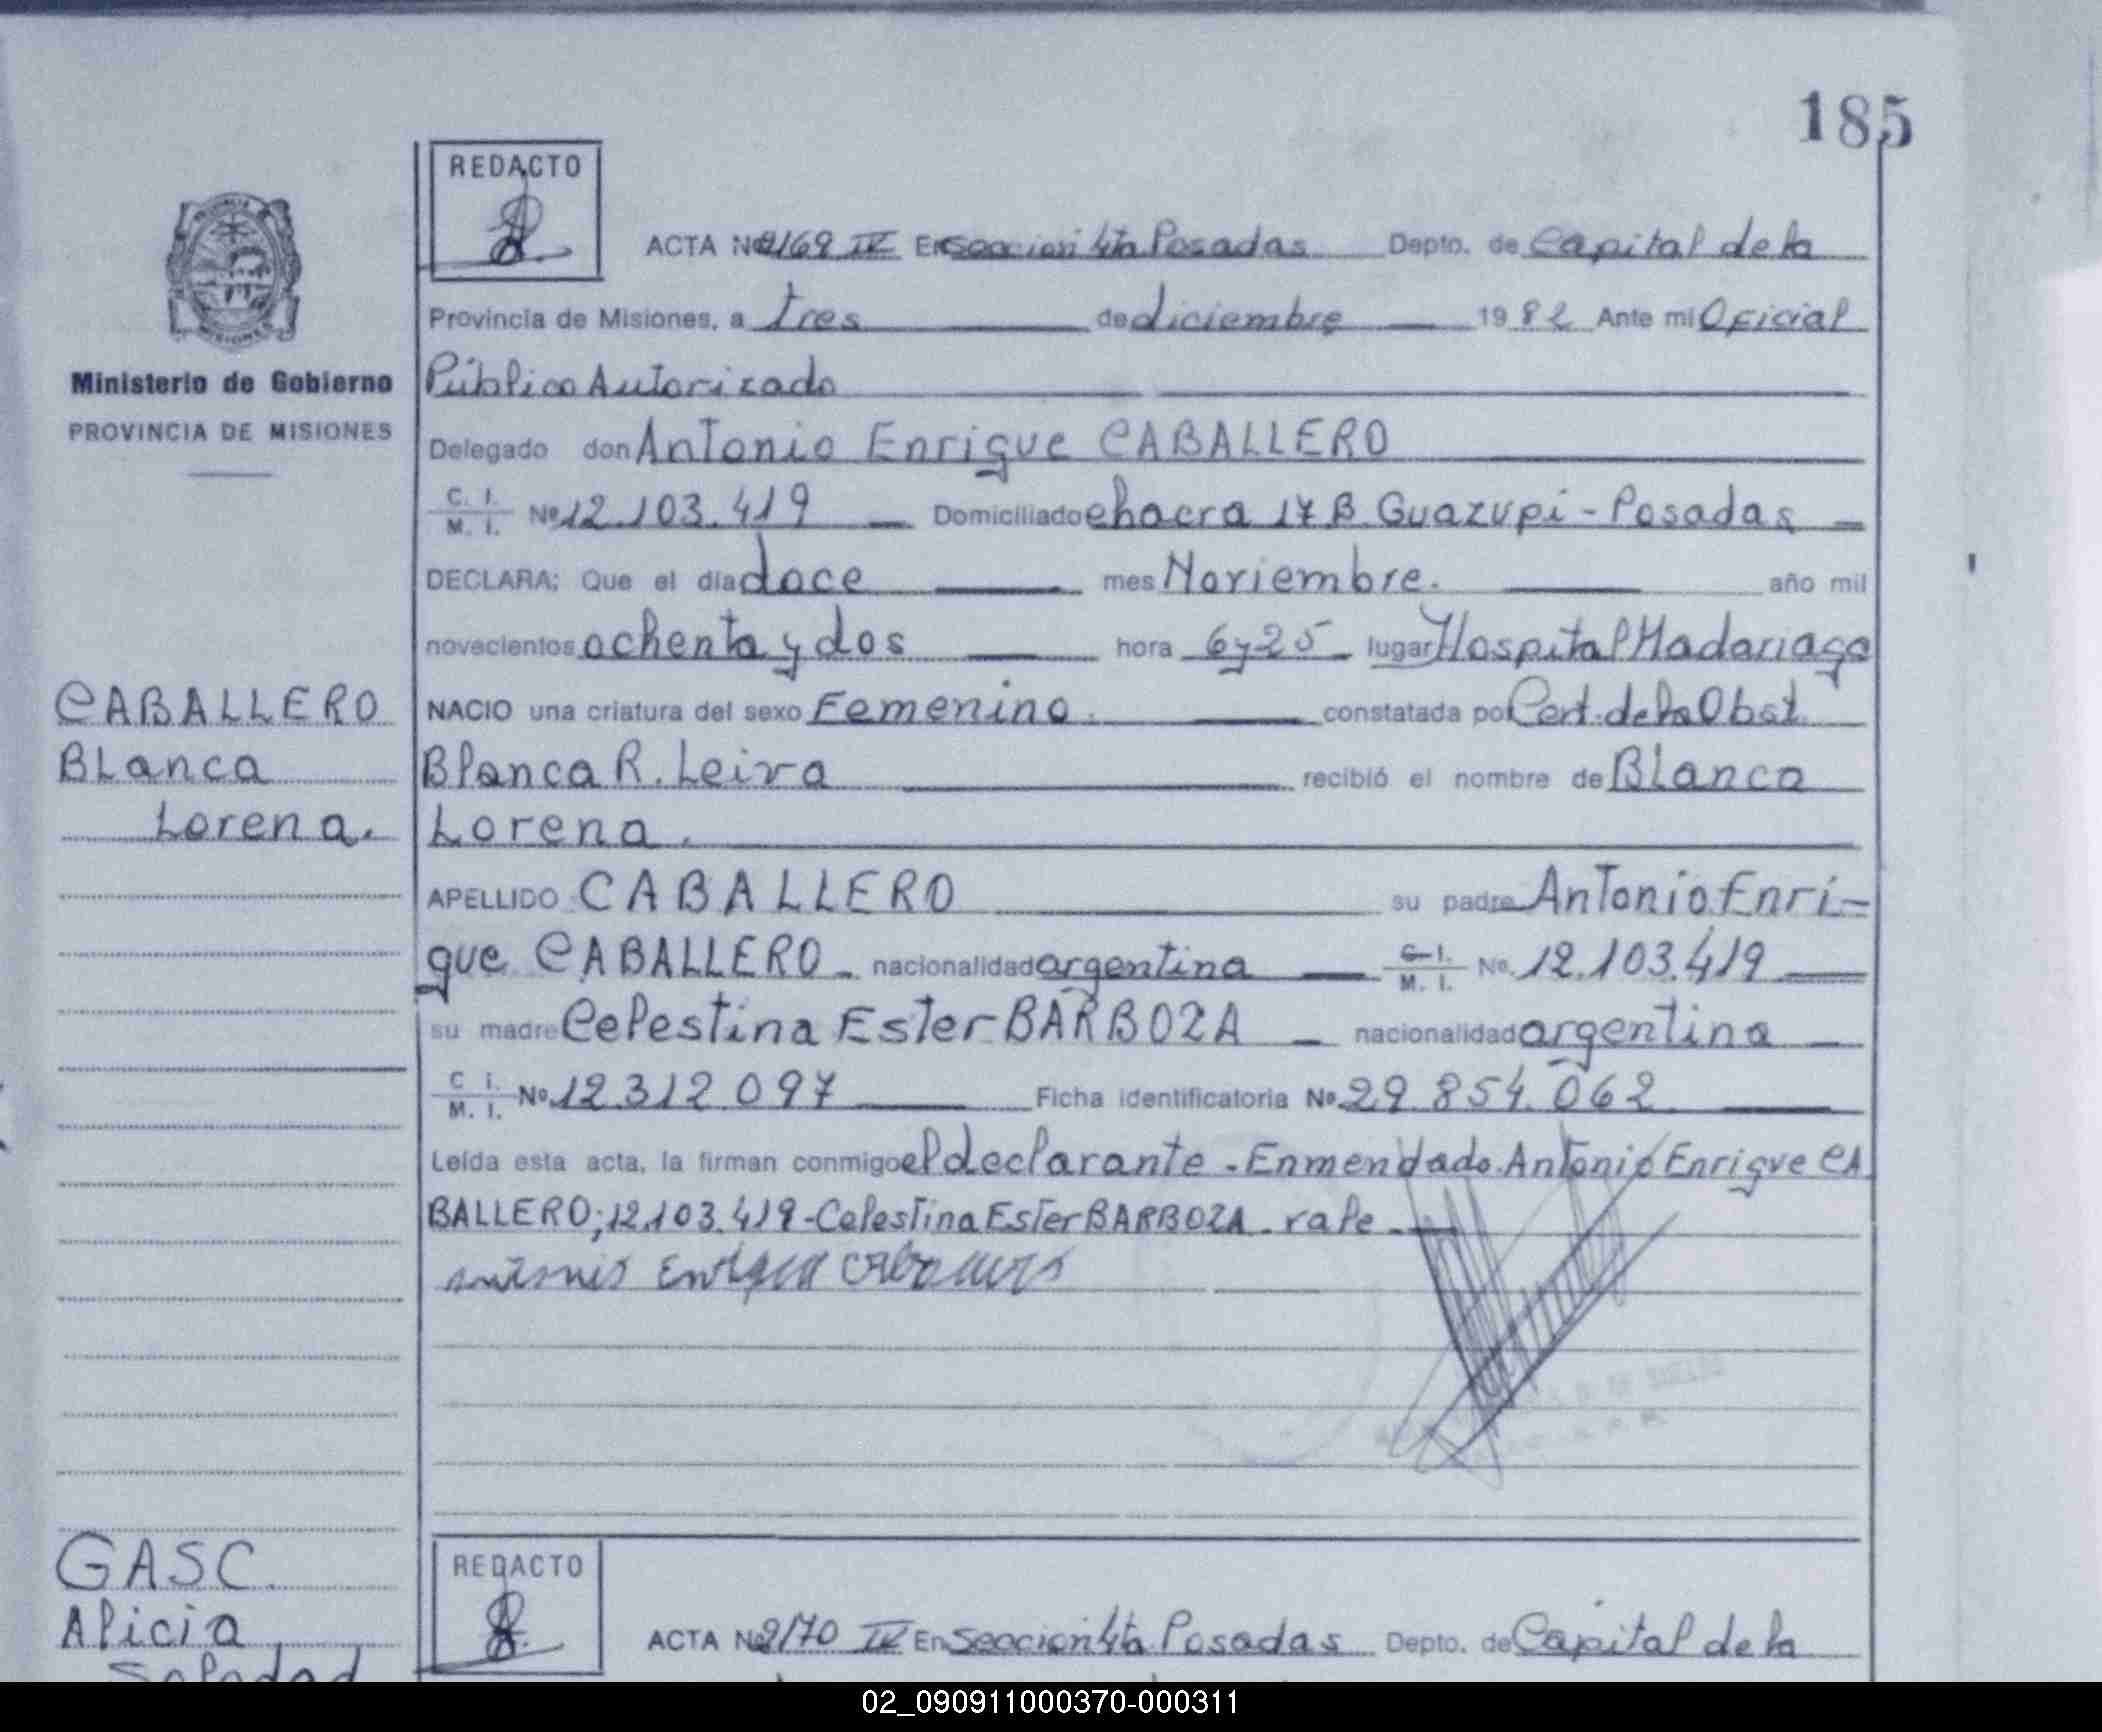 185
REDACTO
ACTA Nº 2169 IV En seccion 4ta Posadas Depto. de Capital de la
Provincia de Misiones, a tres de diciembre 1982 Ante mi Oficial
Ministerio de Gobierno
Público Autorizado
PROVINCIA DE MISIONES
Delegado don Antonio Enrique CABALLERO
C. I. M. I. Nº 12.103.419 Domiciliado chacra 17 B. Guazupi - Posadas
DECLARA; Que el día doce mes Noviembre. año mil
novecientos ochenta y dos hora 6 y 25 lugar Hospital Madariaga
CABALLERO
Blanca
Lorena.
NACIO una criatura del sexo Femenino. constatada por Cert. de la Obst.
Blanca R. Leiva recibió el nombre de Blanca
Lorena.
APELLIDO CABALLERO su padre Antonio Enri-
que CABALLERO nacionalidad argentina C. I. M. I. Nº. 12.103.419
su madre Celestina Ester BARBOZA nacionalidad argentina
C. I. M. I. Nº 12.312.097 Ficha identificatoria Nº 29.854.062
Leída esta acta, la firman conmigo el declarante - Enmendado. Antonio Enrique CA
BALLERO; 12.103.419 - Celestina Ester BARBOZA - vale -
Antonio Enrique Caballero
GASC
Alicia
Soledad
REDACTO
ACTA Nº 2170 IV En seccion 4ta. Posadas Depto. de Capital de la
02_090911000370-000311